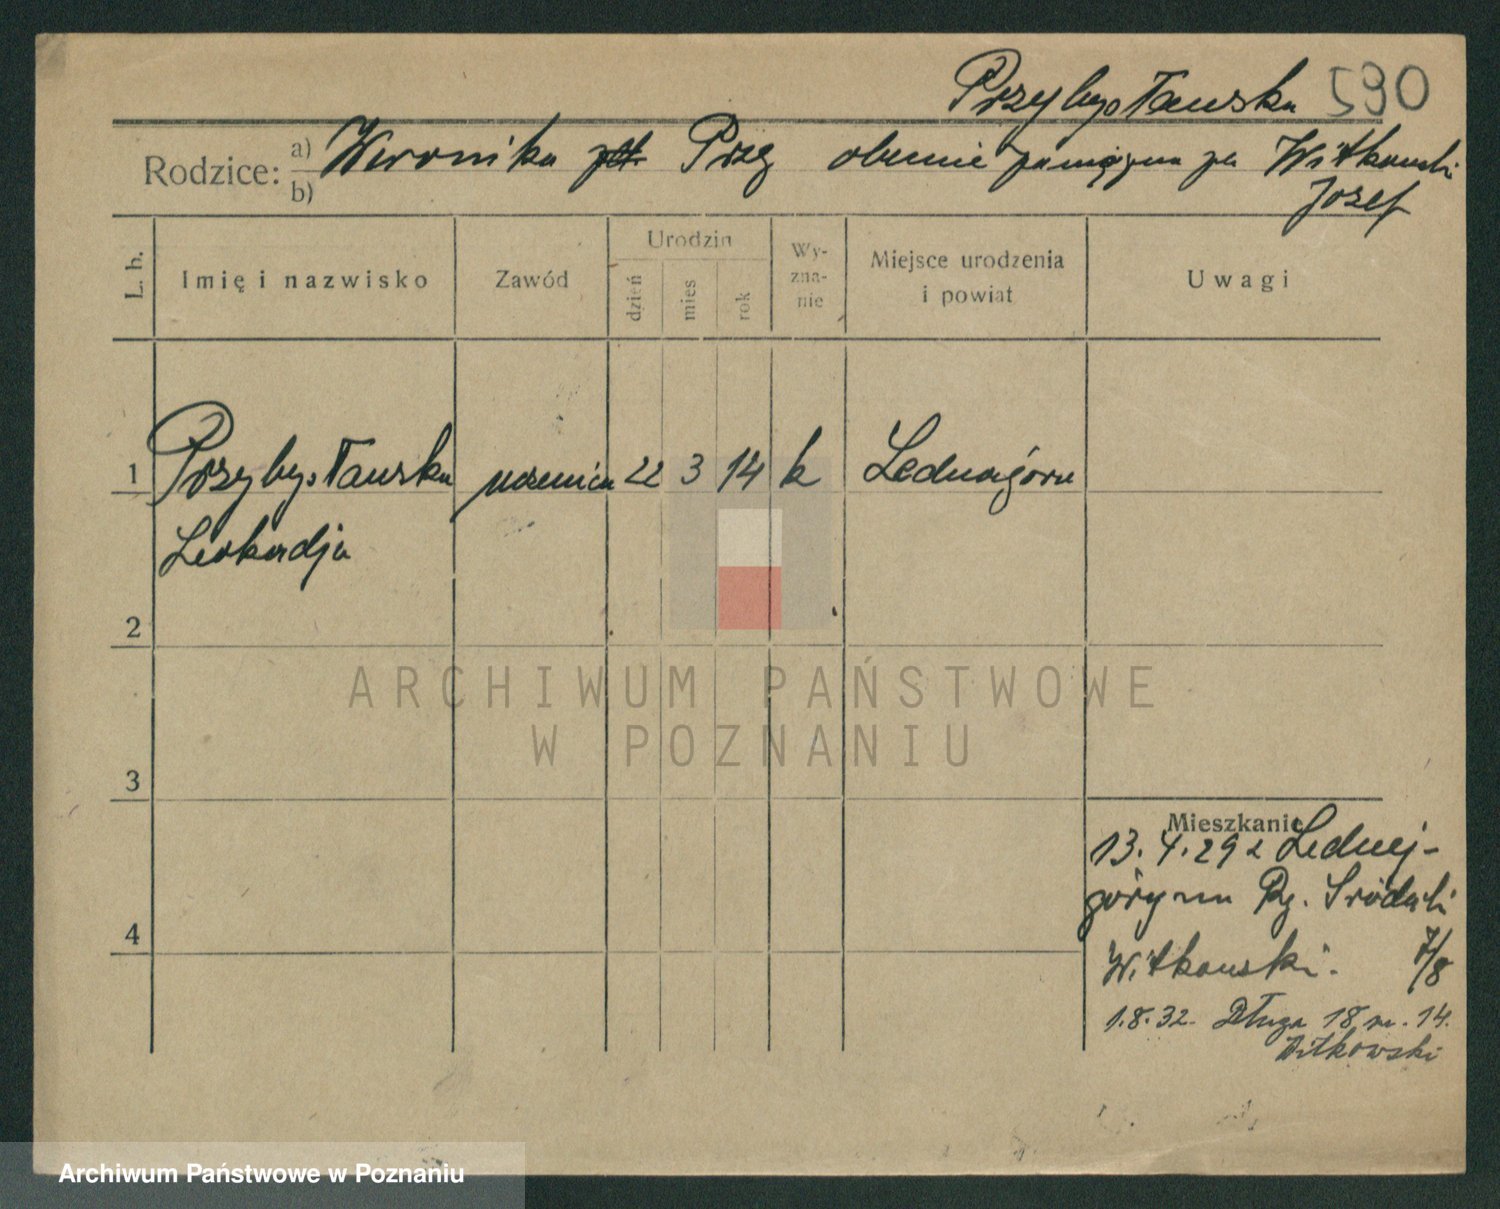 Przybysławska 590
Rodzice: a) Weronika Przy obecnie zamężna za Witkowski
b) Józef
L. b. Imię i nazwisko Zawód Urodzin dzień mies rok Wy-zna-nie Miejsce urodzenia i powiat Uwagi
1 Przybysławska uczenica 22 3 14 k Lednagóra
Leokadja
2
3
4
Mieszkanie
13.4.29 z Lednej-
góry na Ry. Śródecki
Witkowski. 7/8
1.8.32. Długa 18 m. 14.
Witkowski
ARCHIWUM PAŃSTWOWE
W POZNANIU
Archiwum Państwowe w Poznaniu